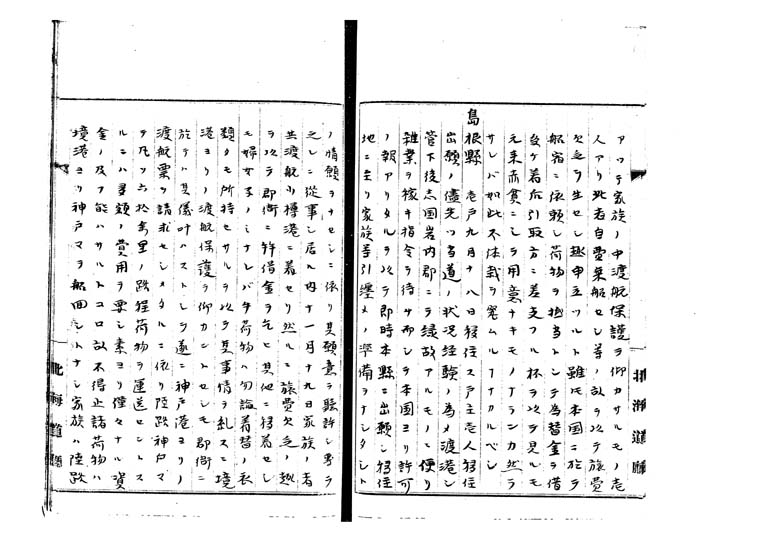 アツテ家族ノ中渡航保護ヲ仰カサルモノ壱
人アリ此者自費乗船セシ等ノ故ヲ以テ旅費
欠乏ヲ生セシ趣申立ツルト雖モ本国ニ於テ
船宿ニ依頼シ荷物ヲ抵当トシテ為替金ヲ借
受ケ着而引取方ニ差支フル抔ヲ以テ見ルモ
元来赤貧ニシテ用意ナキモノナランカ然ラ
サレバ如此不体裁ヲ究ムルナカルベシ
島根縣 壱戸九月十八日移住ス戸主壱人移住
出願ノ儘先ツ当道ノ状況経験ノ為メ渡港シ
管下後志国岩内郡ニテ縁故アルモノニ便リ
雑業ヲ稼キ指令ヲ待サ而シテ本国ヨリ許可
ノ報アリタルヲ以テ即時本縣ニ出願シ移住
地ニ至リ家族等引纏メノ準備ヲナシタシト
北海道廳
ノ情願ヲナセシニ依リ其願意ヲ聴許シ専ラ
之レニ従事シ居ル内十一月十九日家族ノ者
共渡航小樽港ニ着セリ然ルニ旅費欠乏ノ趣
ヲ以テ郡衙ニ幹借金ヲ乞ヒ其他ニ移着セシ
モ婦女子ノミナレバ手荷物ハ勿論着替ノ衣
類タモ所持セサルヲ以テ其事情ヲ糺スニ境
港ヨリノ渡航保護ヲ仰カントセシモ郡衙ニ
於テハ其儀叶ハストシテ遂ニ神戸港ヨリノ
渡航票ヲ請求セシメタルニ依リ陸路神戸マ
テ凡ソ六拾余里ノ路程荷物ヲ運送セントス
ルニハ多額ノ費用ヲ要シ素ヨリ僅々ナル資
金ノ及フ能ハサルトコロ故不得止諸荷物ハ
境港ヨリ神戸マテ船回シトナシ家族ハ陸路
北海道廳